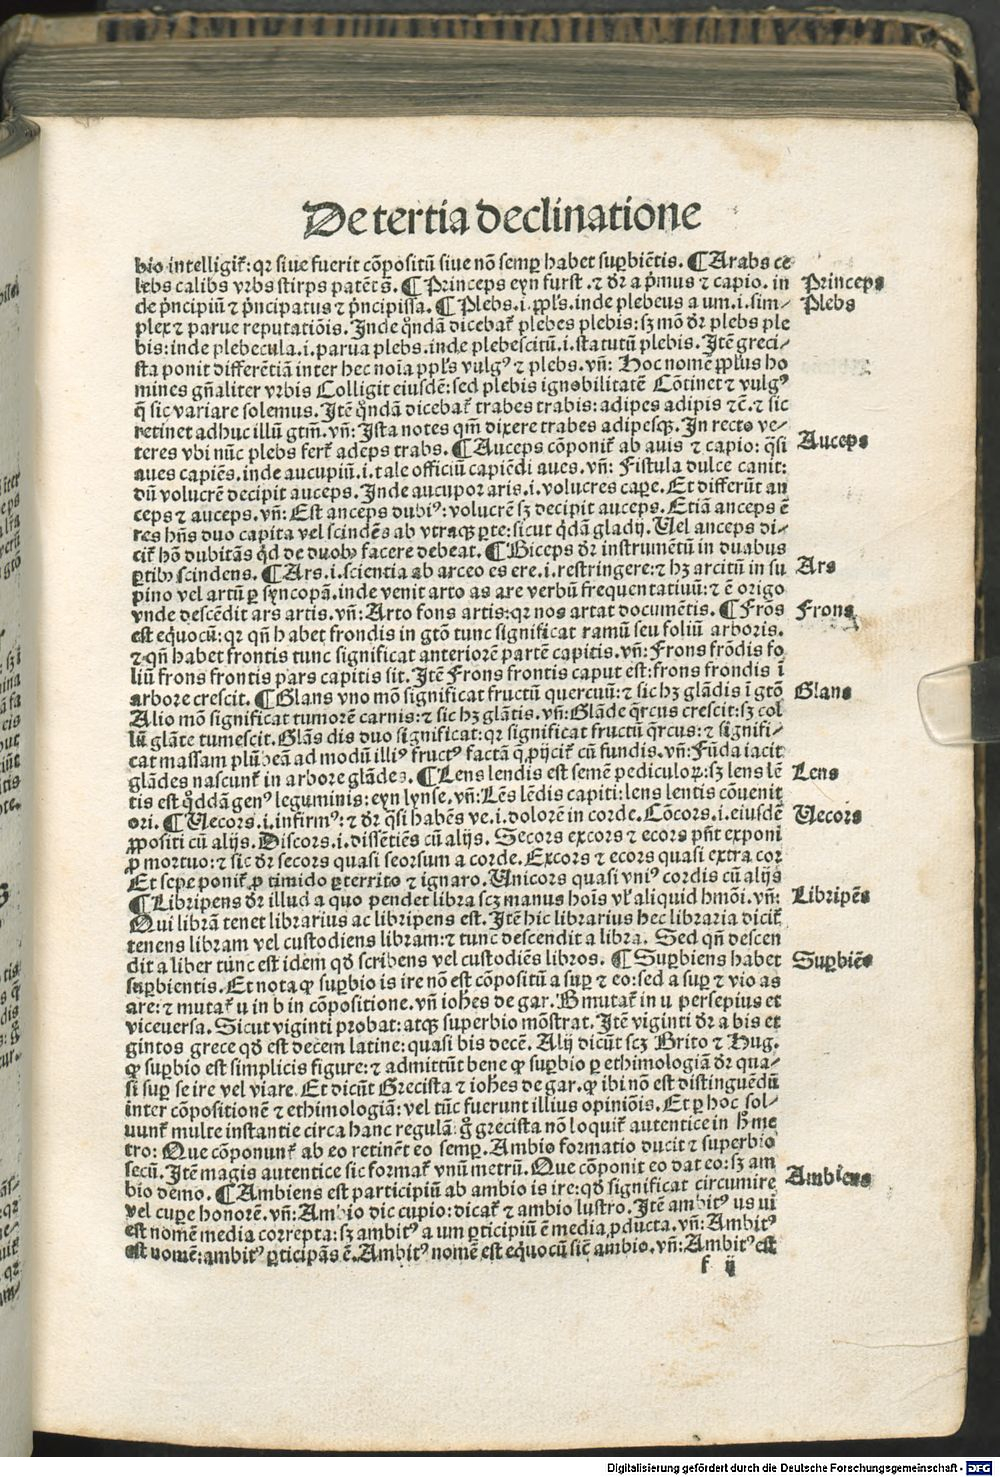 De tertia declinatione
bio intelligit̃: qꝛ siue fuerit cõpositũ siue nõ semꝑ habet suꝑbiẽtis. ¶Arabs ce
lebs calibs vrbs stirps patẽt. ¶Princeps eyn furst. ⁊ dꝛ a p̃mus ⁊ capio. in
de pñcipiũ ⁊ pñcipatus ⁊ pñcipissa. ¶Plebs .i. ppl̃s. inde plebeus a um .i. sim-
plex ⁊ parue reputatiõis. Inde qͦndã dicebat̃ plebes plebis: sꝫ mõ dꝛ plebs ple
bis: inde plebecula .i. parua plebs. inde plebescitũ .i. statutũ plebis. Itẽ greci-
sta ponit differẽtiã inter hec noĩa ppl̃s vulgꝰ ⁊ plebs. vñ: Hoc nomẽ ppl̃us ho
mines gñaliter vrbis Colligit eiusdẽ: sed plebis ignobilitatẽ Cõtinet ⁊ vulgꝰ
q̃ sic variare solemus. Itẽ qͦndã dicebat̃ trabes trabis: adipes adipis ⁊c̃. ⁊ sic
retinet adhuc illũ gtm̃. vñ: Ista notes qm̃ dixere trabes adipesqꝫ. In recto ve-
teres vbi nũc plebs fert̃ adeps trabs. ¶Auceps cõponit̃ ab auis ⁊ capio: q̃si
aues capiẽs. inde aucupiũ .i. tale officiũ capiẽdi aues. vñ: Fistula dulce canit:
dũ volucrẽ decipit auceps. Inde aucupor aris .i. volucres caꝑe. Et differũt an
ceps ⁊ auceps. vñ: Est anceps dubiꝰ: volucrẽ sꝫ decipit auceps. Etiã anceps ẽ
res hñs duo capita vel scindẽs ab vtraqꝫ ꝑte: sicut q̃dã gladij. Uel anceps di-
cit̃ hõ dubitãs qͥd de duobꝰ facere debeat. ¶Biceps dꝛ instrumẽtũ in duabus
ꝑtibꝰ scindens. ¶Ars .i. scientia ab arceo es ere .i. restringere: ⁊ hꝫ arcitũ in su
pino vel artũ ꝑ syncopã. inde venit arto as are verbũ frequentatiuũ: ⁊ ẽ origo
vnde descẽdit ars artis. vñ: Arto fons artis: qꝛ nos artat documẽtis. ¶Frõs
est eq̃uocũ: qꝛ qñ habet frondis in gtõ tunc significat ramũ seu foliũ arboris.
⁊ qñ habet frontis tunc significat anteriorẽ partẽ capitis. vñ: Frons frõdis fo
liũ frons frontis pars capitis sit. Itẽ Frons frontis caput est: frons frondis ĩ
arbore crescit. ¶Glans vno mõ significat fructũ quercuũ: ⁊ sic hꝫ glãdis ĩ gtõ
Alio mõ significat tumorẽ carnis: ⁊ sic hꝫ glãtis. vñ: Glãde q̃rcus crescit: sꝫ col
lũ glãte tumescit. Glãs dis duo significat: qꝛ significat fructũ q̃rcus: ⁊ signifi-
cat massam plũbeã ad modũ illiꝰ fructꝰ factã q̃ ꝓijcit̃ cũ fundis. vñ: Fũda iacit
glãdes nascunt̃ in arbore glãdes. ¶Lens lendis est semẽ pediculoꝝ: sꝫ lens lẽ
tis est q̃ddã genꝰ leguminis: eyn lynse. vñ: Lẽs lẽdis capiti: lens lentis cõuenit
ori. ¶Uecors .i. infirmꝰ: ⁊ dꝛ q̃si habẽs ve .i. dolorẽ in corde. Cõcors .i. eiusdẽ
ꝓpositi cũ alijs. Discors .i. dissẽtiẽs cũ alijs. Secors excors ⁊ ecors pñt exponi
ꝓ mortuo: ⁊ sic dꝛ secors quasi seorsum a corde. Excors ⁊ ecors quasi extra cor
Et sepe ponit̃ ꝓ timido ꝑterrito ⁊ ignaro. Unicors quasi vniꝰ cordis cũ alijs
¶Libripens dꝛ illud a quo pendet libra scꝫ manus hoĩs vl̃ aliquid hmõi. vñ:
Qui librã tenet librarius ac libripens est. Itẽ hic librarius hec libraria dicit̃
tenens libram vel custodiens libram: ⁊ tunc descendit a libra. Sed qñ descen
dit a liber tunc est idem qd̃ scribens vel custodiẽs libros. ¶Suꝑbiens habet
suꝑbientis. Et nota ꝙ suꝑbio is ire nõ est cõpositũ a suꝑ ⁊ eo: sed a suꝑ ⁊ vio as
are: ⁊ mutat̃ u in b in cõpositione. vñ ioh̃es de gar. B mutat̃ in u persepius et
viceuersa. Sicut viginti probat: atqꝫ superbio mõstrat. Itẽ viginti dꝛ a bis et
gintos grece qd̃ est decem latine: quasi bis decẽ. Alij dicũt scꝫ Brito ⁊ Hug.
ꝙ suꝑbio est simplicis figure: ⁊ admittũt bene ꝙ suꝑbio ꝑ ethimologiã dꝛ qua-
si suꝑ se ire vel viare. Et dicũt Grecista ⁊ ioh̃es de gar. ꝙ ibi nõ est distinguẽdũ
inter cõpositionẽ ⁊ ethimologiã: vel tũc fuerunt illius opiniõis. Et ꝑ hoc sol-
uunt̃ multe instantie circa hanc regulã gͦ grecista nõ loquit̃ autentice in hͦ me
tro: Que cõponunt̃ ab eo retinẽt eo semꝑ. Ambio formatio ducit ⁊ superbio
secũ. Itẽ magis autentice sic format̃ vnũ metrũ. Que cõponit eo dat eo: sꝫ am
bio demo. ¶Ambiens est participiũ ab ambio is ire: qd̃ significat circumire
vel cupe honorẽ. vñ: Ambio dic cupio: dicat̃ ⁊ ambio lustro. Itẽ ambitꝰ us ui
est nomẽ media correpta: sꝫ ambitꝰ a um ꝑticipiũ ẽ media ꝓducta. vñ: Ambitꝰ
est nomẽ: ambitꝰ ꝑticipãs ẽ. Ambitꝰ nomẽ est eq̃uocũ sic̃ ambio. vñ: Ambitꝰ est
f ij
Princeps
Plebs
Auceps
Ars
Frons
Glans
Lens
Uecors
Libripẽs
Suꝑbiẽs
Ambiens
Digitalisierung gefördert durch die Deutsche Forschungsgemeinschaft - DFG